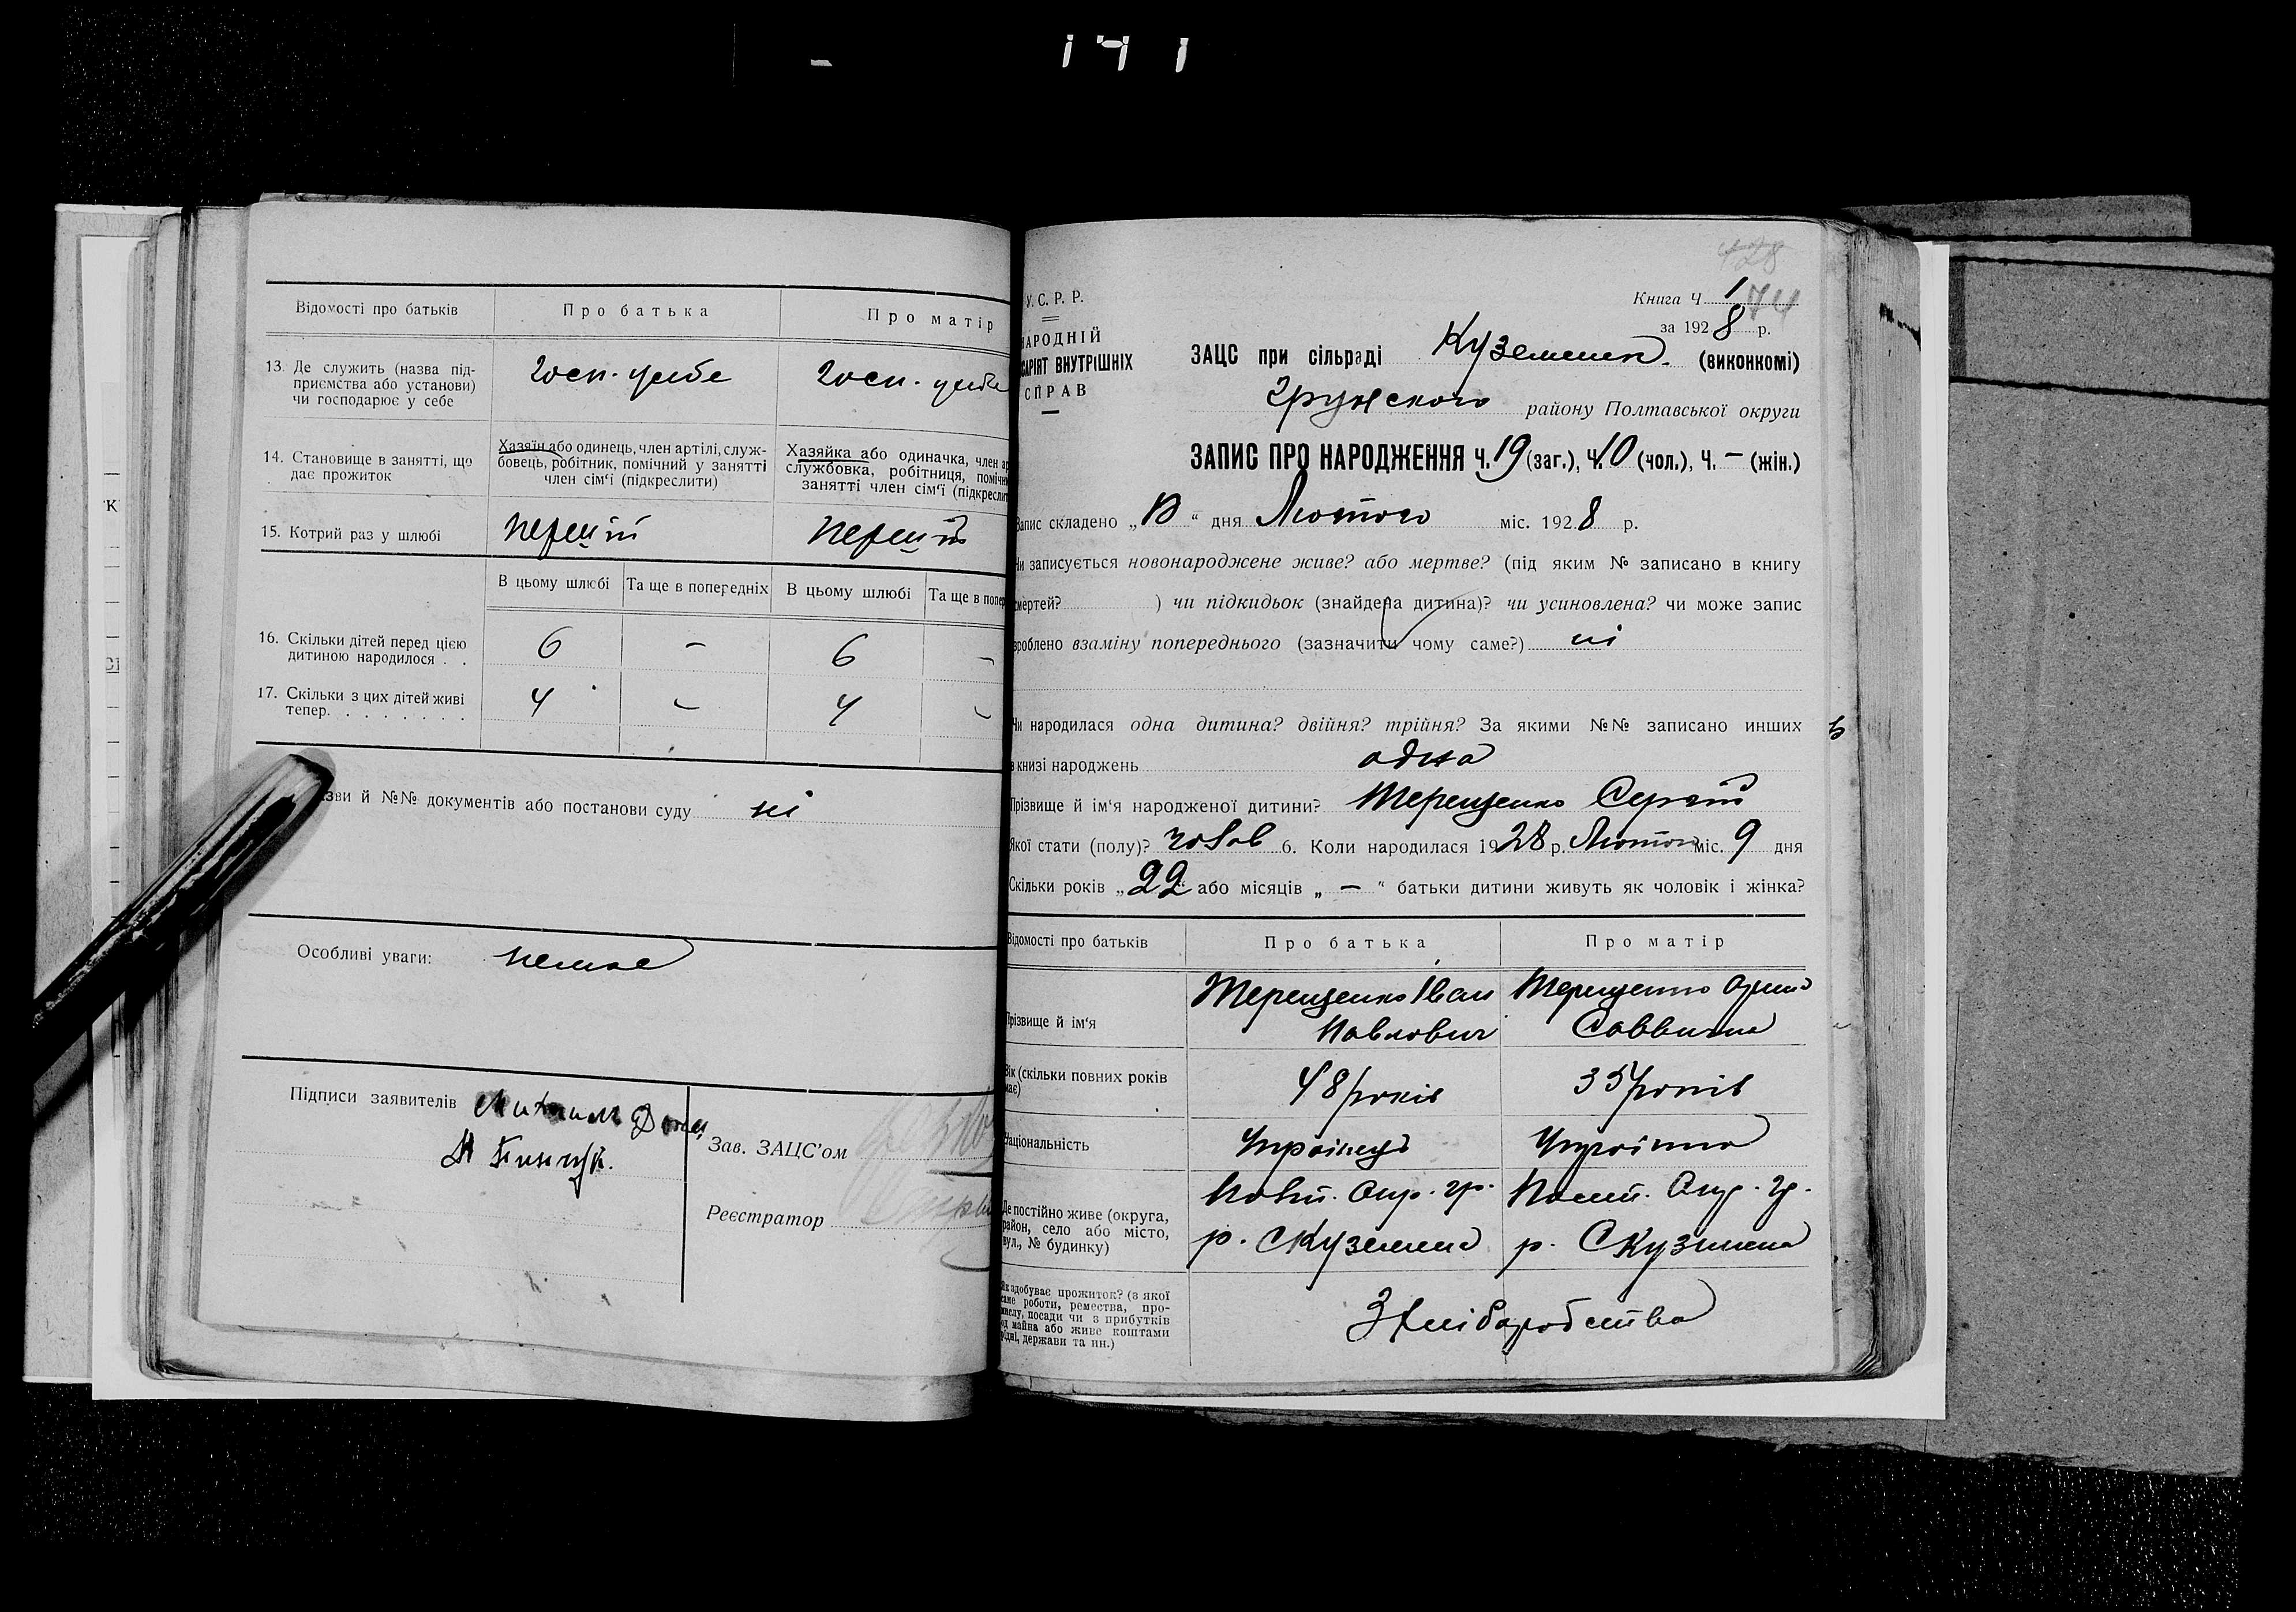 141
Відомості про батьків
Про батька
Про матір
13. Де служить (назва під-
приємства або установи)
чи господарює у себе
госп. у себе
госп. у себе
14. Становище в занятті, що
дає прожиток
Хазяїн або одинець, член артілі, служ-
бовець, робітник, помічний у занятті
член сім'ї (підкреслити)
Хазяйка або одиначка, член ар
службовка, робітниця, помічн
занятті член сім'ї (підкреслит
15. Котрий раз у шлюбі
перший
перший
В цьому шлюбі
Та ще в попередніх
В цьому шлюбі
Та ще в попер
16. Скільки дітей перед цією
дитиною народилося . .
6 - 6 -
17. Скільки з цих дітей живі
тепер. . . . . . . .
4 - 4 -
зви й №№ документів або постанови суду ні
Особливі уваги: немає
Підписи заявителів
Зав. ЗАЦС'ом
Реєстратор
128
У.С.Р.Р.
НАРОДНІЙ
САРІЯТ ВНУТРІШНІХ
СПРАВ
Книга Ч 1
74
за 1928 р.
ЗАЦС при сільраді Куземенск. (виконкомі)
Грунского району Полтавської округи
ЗАПИС ПРО НАРОДЖЕННЯ Ч. 19 (заг.), Ч. 10 (чол.), Ч. - (жін.)
Запис складено „ “ дня Лютого міс. 1928 р.
Чи записується новонароджене живе? або мертве? (під яким № записано в книгу
смертей? ) чи підкидьок (знайдена дитина)? чи усиновлена? чи може запис
зроблено взаміну попереднього (зазначити чому саме?) ні
Чи народилася одна дитина? двійня? трійня? За якими №№ записано инших
в книзі народжень одна
Прізвище й ім'я народженої дитини? Терещенко Сергій
Якої стати (полу)? чолов 6. Коли народилася 1928 р. Лютого міс. 9 дня
Скільки років „22“ або місяців „ - “ батьки дитини живуть як чоловік і жінка?
Відомості про батьків
Про батька
Про матір
Прізвище й ім'я
Терещенко Іван
Павлович
Терещенко Орина
Саввична
Вік (скільки повних років
має)
48 років
35 років
Національність
Українець
Українка
Де постійно живе (округа,
район, село або місто,
вул., № будинку)
Полт. Окр. гр.
р. С Куземена
Полт. Окр. гр.
р. С Куземена
Як здобуває прожиток? (з якої
саме роботи, ремества, про-
мислу, посади чи з прибутків
од майна або живе коштами
рідні, держави та ин.)
З хліборобства